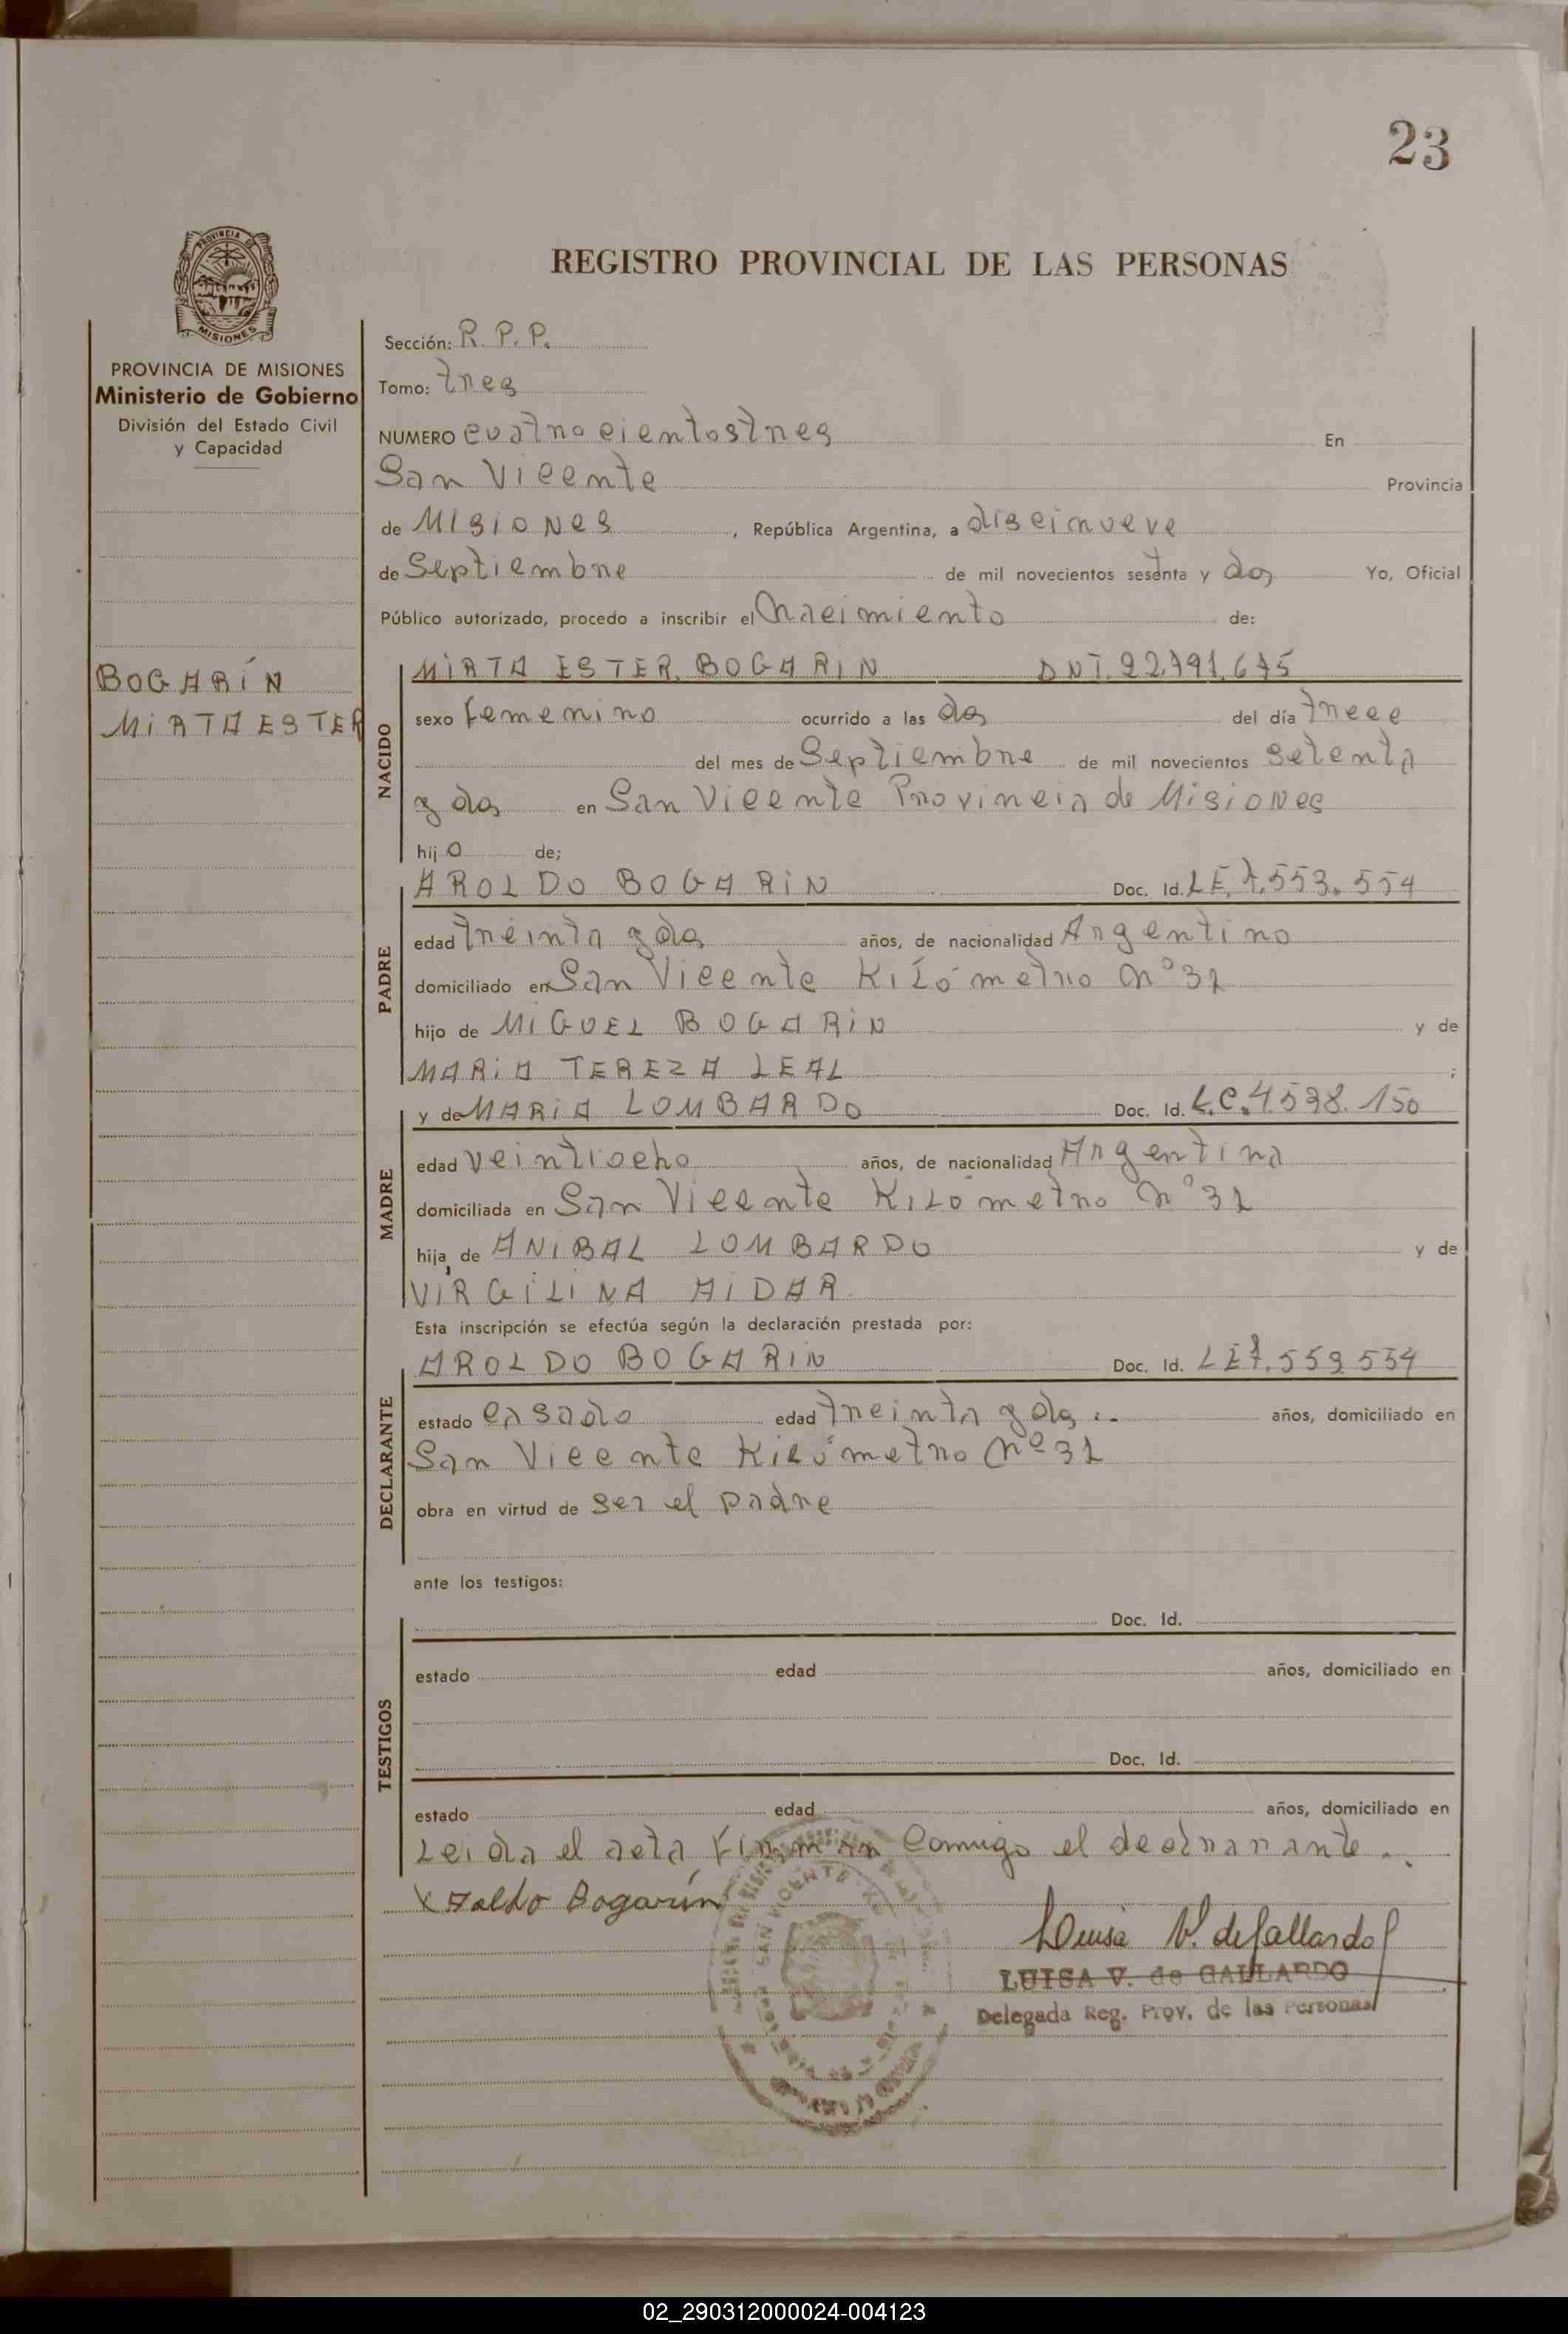 23
REGISTRO PROVINCIAL DE LAS PERSONAS
PROVINCIA DE MISIONES
Ministerio de Gobierno
División del Estado Civil
y Capacidad
BOGARÍN
MIRTA ESTER
Sección: R. P. P.
Tomo: tres
NUMERO cuatrocientostres En
San Vicente Provincia
de Misiones, República Argentina, a diseinueve
de Septiembre de mil novecientos sesenta y dos Yo, Oficial
Público autorizado, procedo a inscribir el Nacimiento de:
NACIDO
MIRTA ESTER BOGARIN DNI. 22.791.675
sexo femenino ocurrido a las dos del día trece
del mes de Septiembre de mil novecientos setenta
y dos en San Vicente Provincia de Misiones
hijo de;
PADRE
AROLDO BOGARIN Doc. Id. L.E. 7.553.554
edad treinta y dos años, de nacionalidad Argentino
domiciliado en San Vicente Kilómetro Nº 31
hijo de MIGUEL BOGARIN y de
MARIA TEREZA LEAL ;
MADRE
y de MARIA LOMBARDO Doc. Id. L.C. 4.598.150
edad veintiocho años, de nacionalidad Argentina
domiciliada en San Vicente Kilómetro Nº 31
hija de ANIBAL LOMBARDO y de
VIRGILINA AIDAR
Esta inscripción se efectúa según la declaración prestada por:
DECLARANTE
AROLDO BOGARIN Doc. Id. LE 7.553 554
estado casado edad treinta y dos años, domiciliado en
San Vicente Kilómetro Nº 31
obra en virtud de ser el padre
ante los testigos:
TESTIGOS
Doc. Id.
estado edad años, domiciliado en
Doc. Id.
estado edad años, domiciliado en
Leida el acta, firman Comigo el declarante.
X Bogarín
Luisa V. de Gallardo
LUISA V. de GALLARDO
Delegada Reg. Prov. de las Personas
SAN VICENTE
02_290312000024-004123